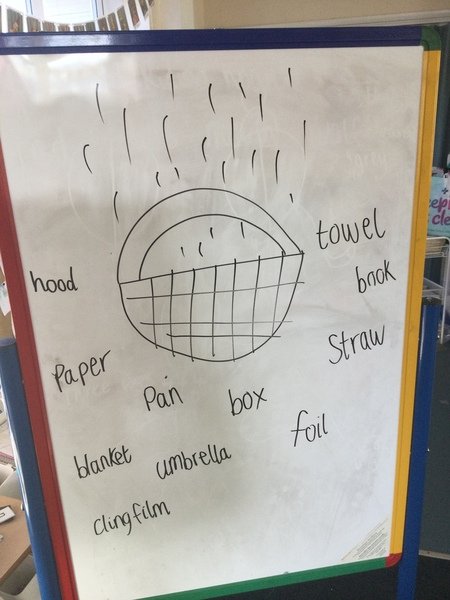 towel
hood
book
Straw
Paper
Pan
box
foil
blanket
umbrella
clingfilm